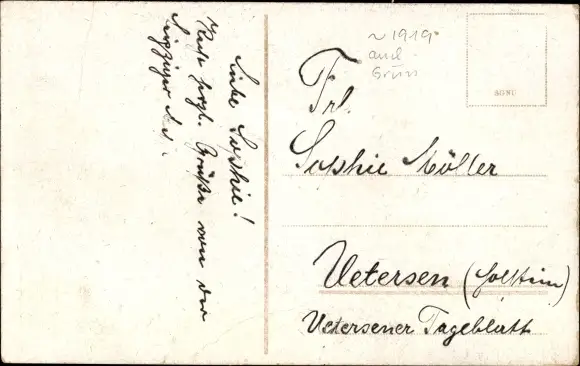 Liebe Sophie!
Recht herzl. Grüße von der
Leipziger
~ 1919
and
Gruss
SGNU
Frl.
Sophie Möller
Uetersen (Holstein)
Uetersener Tageblatt